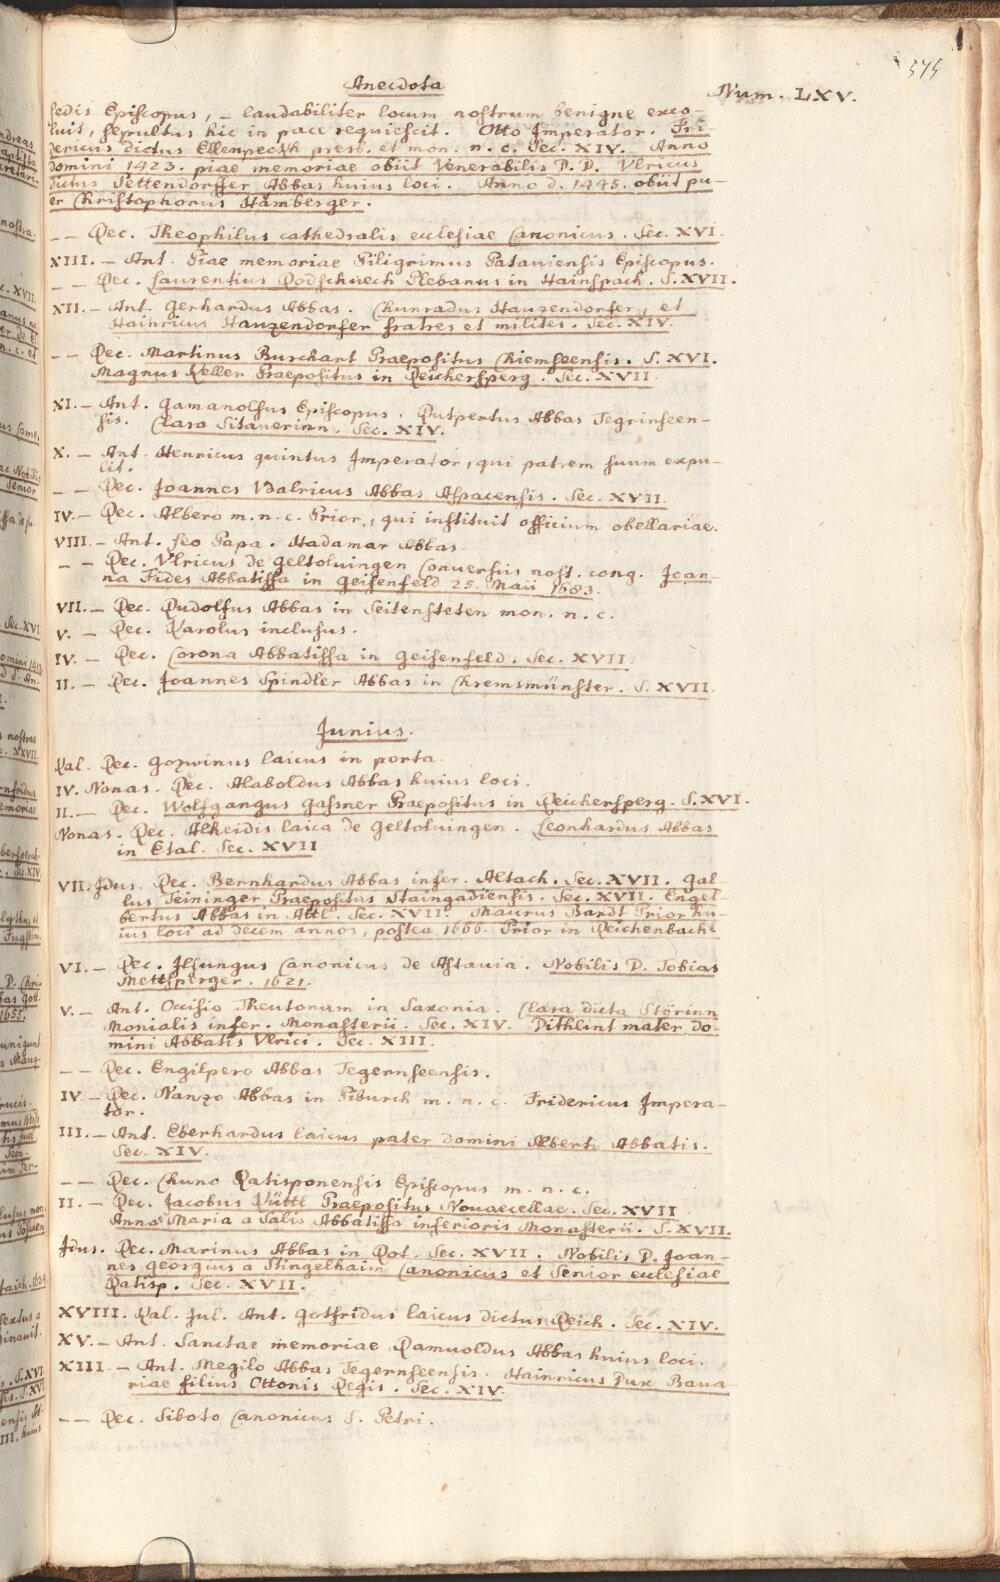 575
Anecdota
Num. LXV.
sedis Episcopus, – laudabiliter locum nostrum benigne exco-
luit, sepultus hic in pace requiescit. Otto Imperator. Fri-
dericus dictus Ellenpeckh presb. et mon. n. c. Sec. XIV. Anno
Domini 1423. piae memoriae obiit Venerabilis P. D. Vlricus
dictus Pettendorffer Abbas huius loci. Anno d. 1445. obiit pu-
er Christophorus Hämberger.
– – Dec. Theophilus cathedralis ecclesiae Canonicus. Sec. XVI.
XIII. – Ant. Piae memoriae Piligrimus Pataviensis Episcopus.
– – Dec. Laurentius Dodschuech Plebanus in Hainspach. S. XVII.
XII. – Ant. Gerhardus Abbas. Chunradus Hauzendorfer, et
Hainricus Hauzendorfer fratres et milites. Sec. XIV.
– – Dec. Martinus Burckart Praepositus Chiemseensis. S. XVI.
Magnus Keller Praepositus in Reichersperg. Sec. XVII.
XI. – Ant. Gamanolfus Episcopus. Rutpertus Abbas Tegrinseen-
sis. Clara Sitauerinn. Sec. XIV.
X. – Ant. Henricus quintus Imperator, qui patrem suum expu-
lit.
– – Dec. Joannes Vdalricus Abbas Aspacensis. Sec. XVII.
IV. – Dec. Albero m. n. c. Prior, qui instituit officium obellariae.
VIII. – Ant. Leo Papa. Hadamar Abbas.
– – Dec. Vlricus de Geltoluingen Conuersus nost. cong. Joan-
na Fides Abbatissa in Geisenfeld 25. Maii 1683.
VII. – Dec. Rudolfus Abbas in Seitensteten mon. n. c.
V. – Dec. Karolus inclusus.
IV. – Dec. Corona Abbatissa in Geisenfeld. Sec. XVII.
II. – Dec. Joannes Spindler Abbas in Chremsmünster. S. XVII.
Junius.
Kal. Dec. Gozwinus laicus in porta.
IV. Nonas. Dec. Alaboldus Abbas huius loci.
II. – Dec. Wolfgangus Gassner Praepositus in Reichersperg. S. XVI.
Nonas. Dec. Alheidis laica de Geltoluingen. Leonhardus Abbas
in Etal. Sec. XVII.
VII. Idus. Dec. Bernhardus Abbas infer. Altach. Sec. XVII. Gal-
lus Teininger Praepositus Staingadiensis. Sec. XVII. Engel-
bertus Abbas in Attl. Sec. XVII. Maurus Bardt Prior hu-
ius loci ad decem annos, postea 1666. Prior in Reichenbach.
VI. – Dec. Ilsungus Canonicus de Astauia. Nobilis D. Tobias
Mettsperger. 1621.
V. – Ant. Occisio Theutonum in Saxonia. Clara dicta Störinn
Monialis infer. Monasterii. Sec. XIV. Dithlint mater do-
mini Abbatis Vlrici. Sec. XIII.
– – Dec. Engilpero Abbas Tegernseensis.
IV – Dec. Nanzo Abbas in Piburch m. n. c. Fridericus Impera-
tor.
III. – Ant. Eberhardus laicus pater domini Alberti Abbatis.
Sec. XIV.
– – Dec. Chuno Ratisponensis Episcopus m. n. c.
II. – Dec. Jacobus Püttl Praepositus Nouaecellae. Sec. XVII
Anna Maria a Salis Abbatissa inferioris Monasterii. S. XVII.
Idus. Dec. Marinus Abbas in Rot. Sec. XVII. Nobilis D. Joan-
nes Georgius a Stingelhaim Canonicus et Senior ecclesiae
Ratisp. Sec. XVII.
XVIII. Kal. Jul. Ant. Gotfridus laicus dictus Reich. Sec. XIV.
XV. – Ant. Sanctae memoriae Ramuoldus Abbas huius loci.
XIII. – Ant. Megilo Abbas Tegernseensis. Hainricus Dux Baua
riae filius Ottonis Regis. Sec. XIV.
– – Dec. Siboto Canonicus S. Petri.